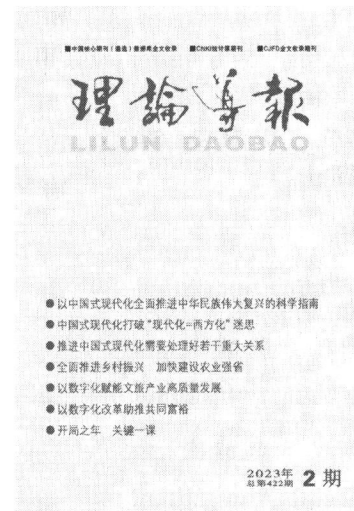 ■中国核心期刊（遴选）数据库全文收录 ■CNKI统计源期刊 ■CJFD全文收录期刊
理論导報
LILUN DAOBAO
●以中国式现代化全面推进中华民族伟大复兴的科学指南
●中国式现代化打破“现代化=西方化”迷思
●推进中国式现代化需要处理好若干重大关系
●全面推进乡村振兴 加快建设农业强省
●以数字化赋能文旅产业高质量发展
●以数字化改革助推共同富裕
●开局之年 关键一课
2023年
总第422期
2期